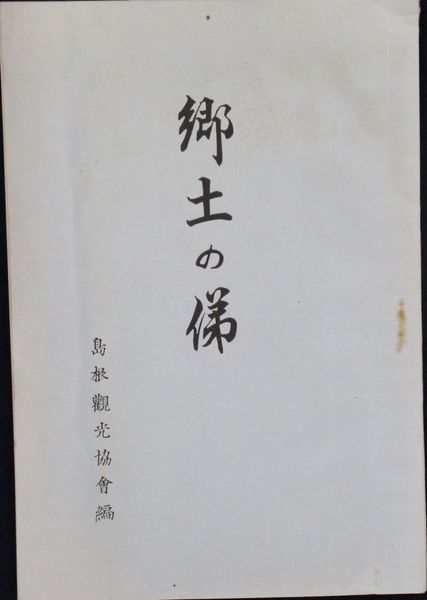 郷土の俤
島根觀光協會編